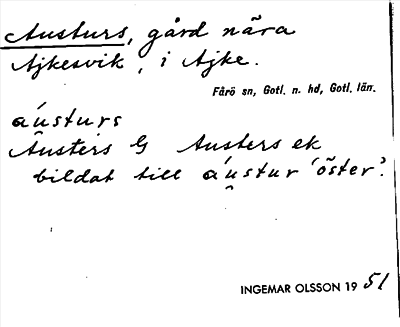 Austurs, gård nära
Ajkesvik, i Ajke.
Fårö sn, Gotl. n. hd, Gotl. län.
áusturs
Austers G Austers ek
bildat till áustur 'öster'.
INGEMAR OLSSON 19 51